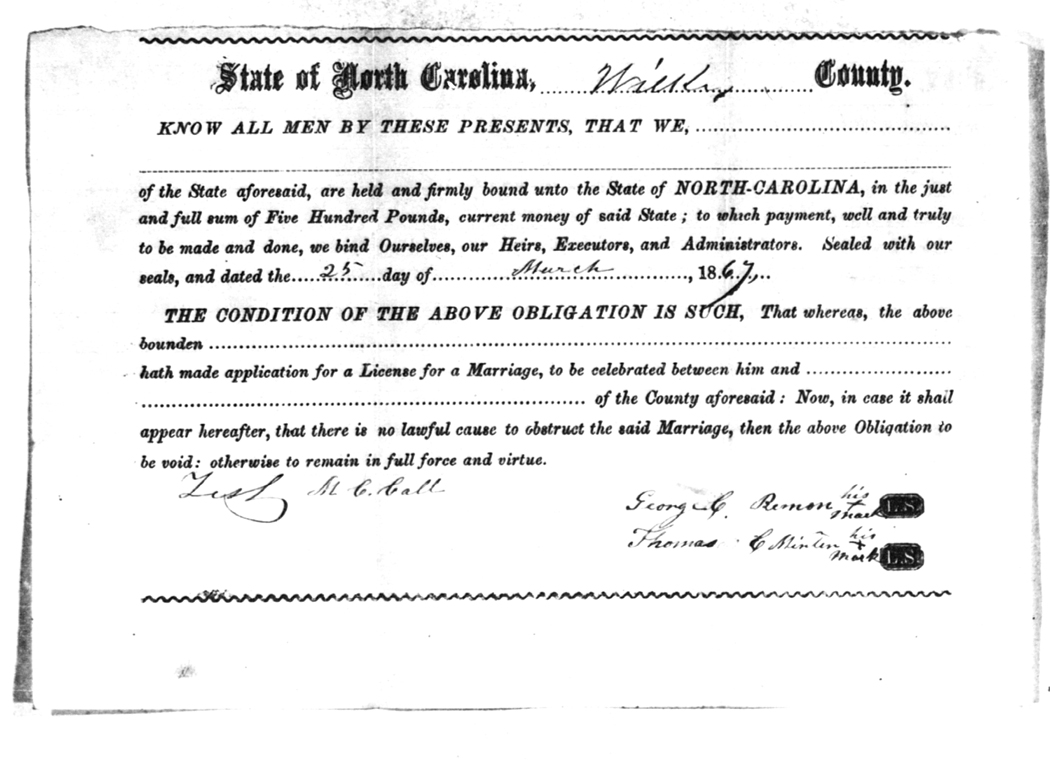 State of North Carolina, Wilkes County.
KNOW ALL MEN BY THESE PRESENTS, THAT WE,
of the State aforesaid, are held and firmly bound unto the State of NORTH-CAROLINA, in the just
and full sum of Five Hundred Pounds, current money of said State; to which payment, well and truly
to be made and done, we bind Ourselves, our Heirs, Executors, and Administrators. Sealed with our
seals, and dated the 25 day of March, 1867,
THE CONDITION OF THE ABOVE OBLIGATION IS SUCH, That whereas, the above
bounden
hath made application for a License for a Marriage, to be celebrated between him and
of the County aforesaid: Now, in case it shall
appear hereafter, that there is no lawful cause to obstruct the said Marriage, then the above Obligation to
be void: otherwise to remain in full force and virtue.
Test M. C. Call
George C. Remon his + mark L.S.
Thomas C Minten his + mark L.S.